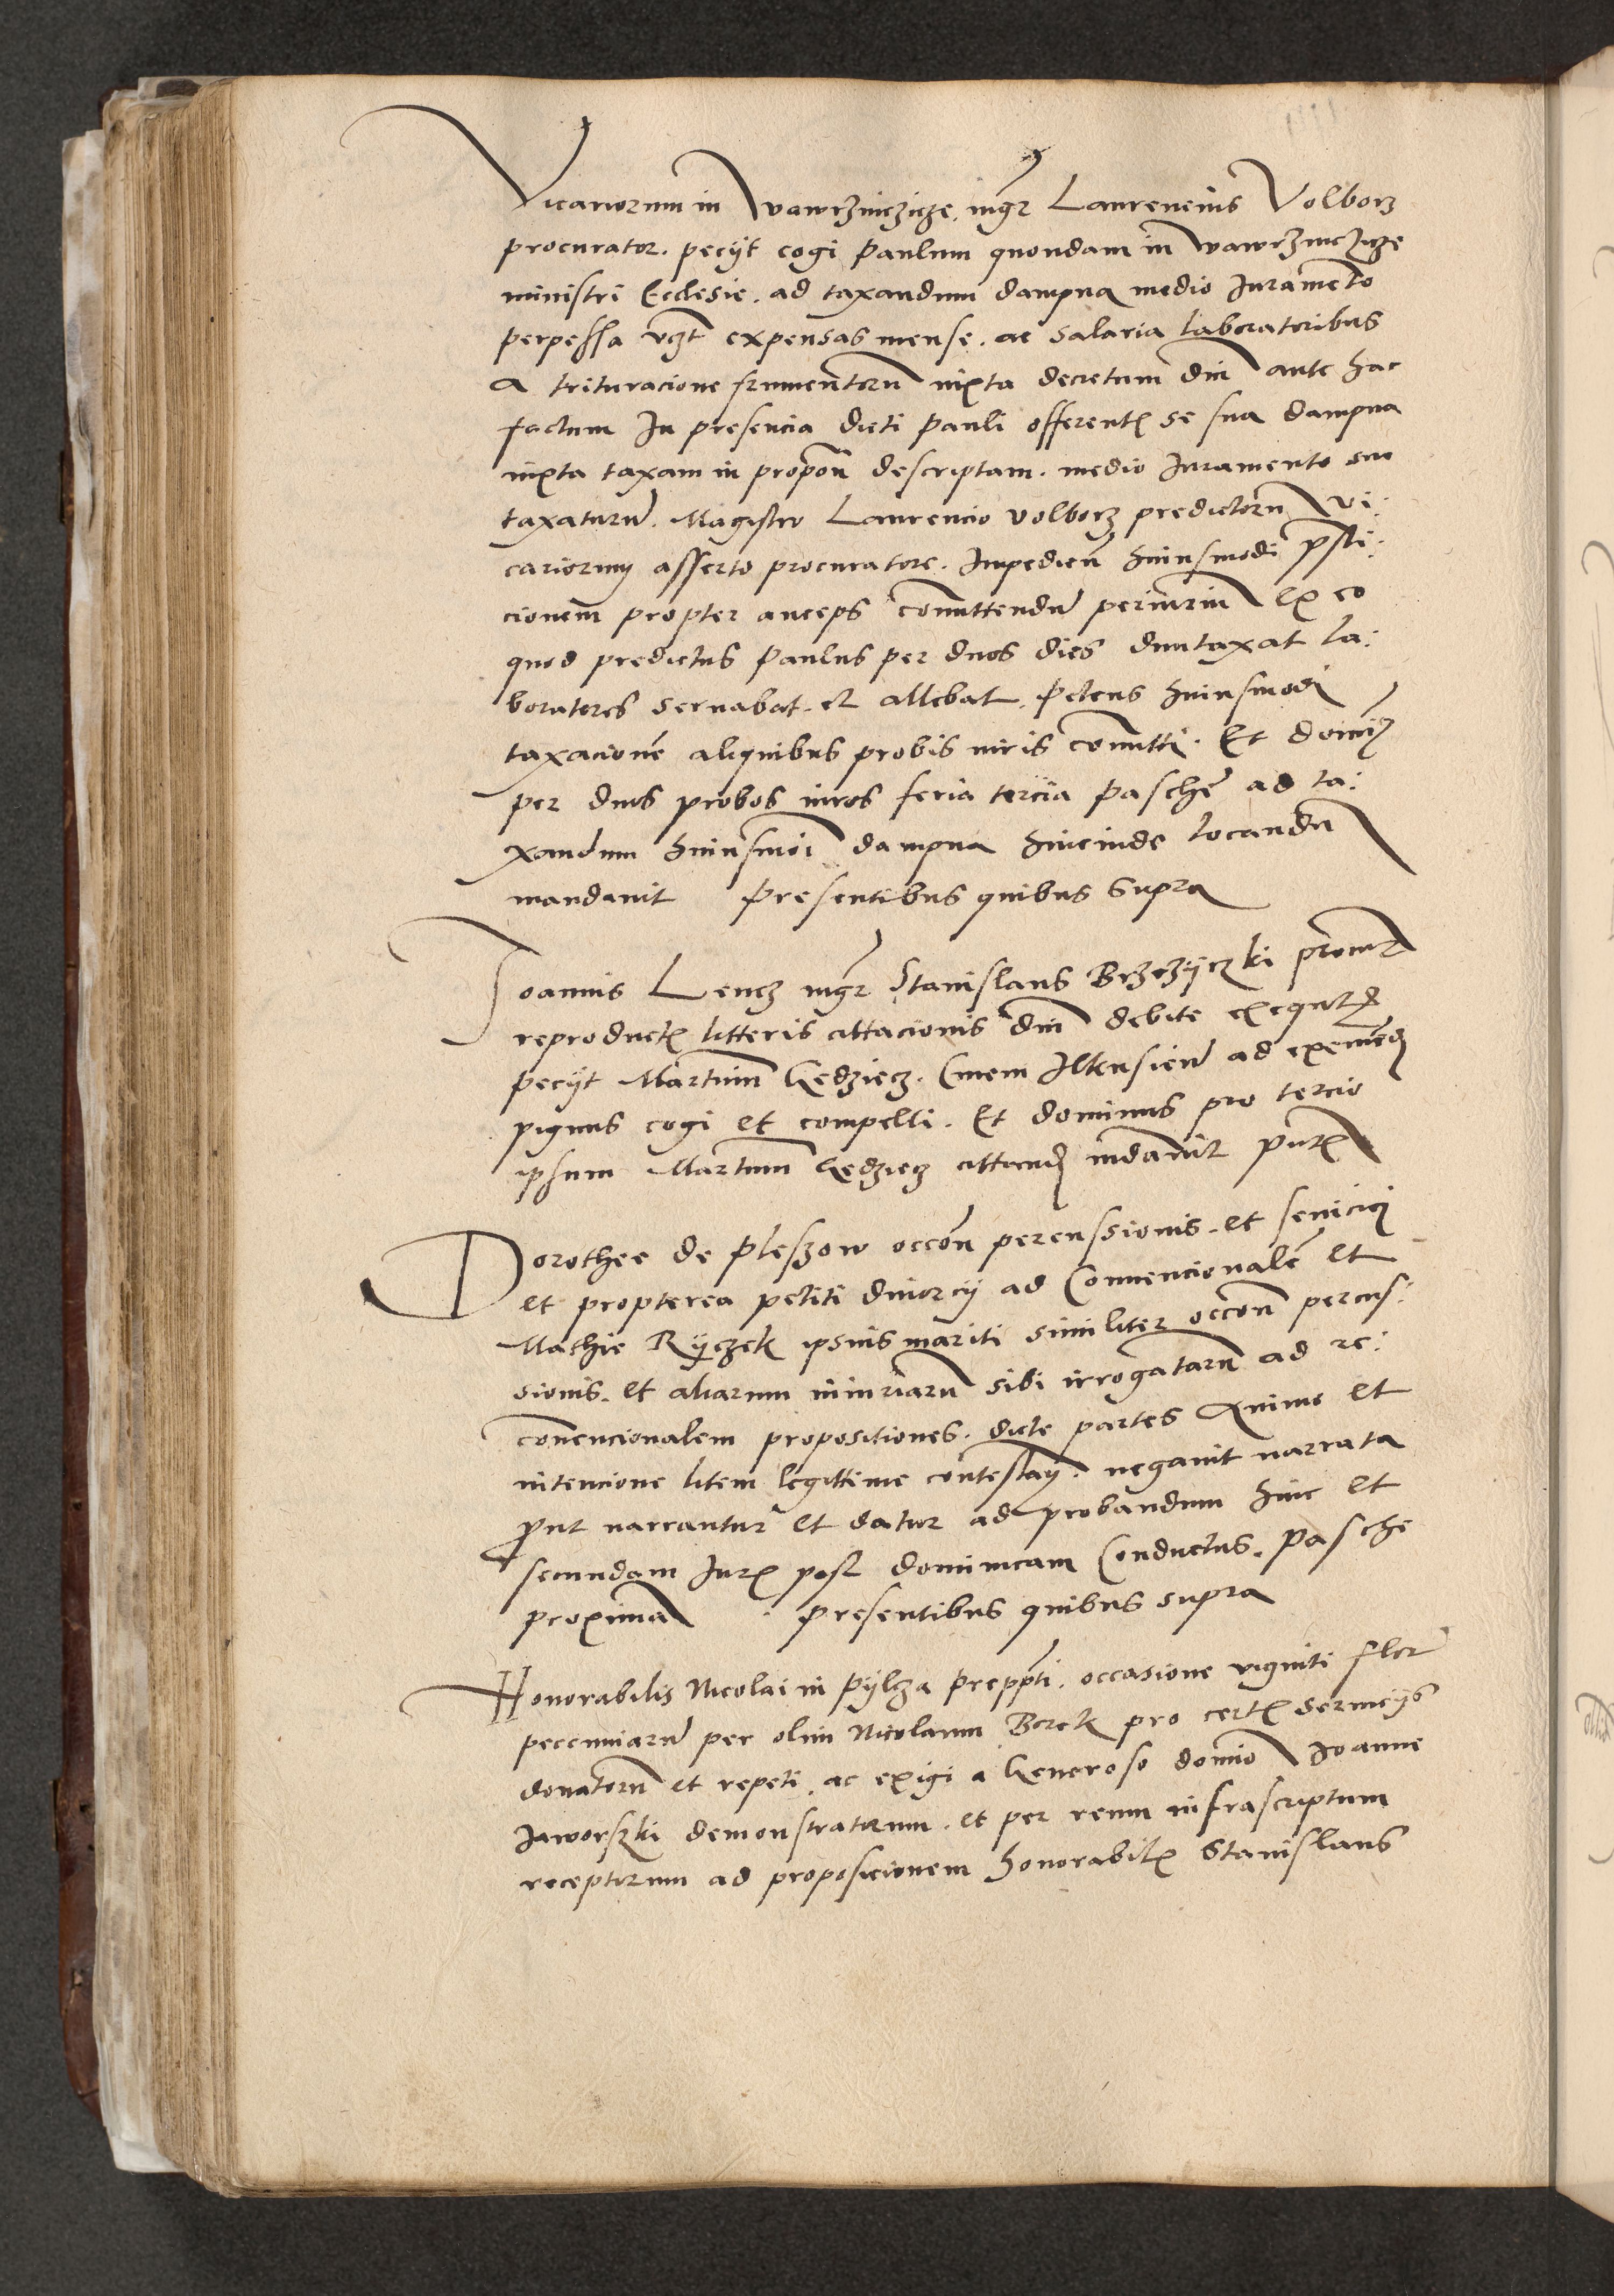 Vicariorum in Wawrzinczicze. mgr Laurencius Volborz
procurator. peciit cogi Paulum quondam in Wawrzinczicze
ministri Ecclesie. ad taxandum dampna medio Iuramento
perpessa vczt expensas mense. ac salaria laboratoribus
a trituracione frumentorum iuxta decretum dni ante hac
factum In presencia dicti Pauli offerentis se sua dampna
iuxta taxam in propon descriptam. medio Iuramento suo
taxaturum. Magistro Laurencio Volborz predictorum Vi:
cariorum asserto procuratore. Impedien huiusmodi
cionem propter anceps comittendum periurium Ex eo
quod predictus Paulus per duos dies duntaxat la:
boratores seruabat. et allebat. Petens huiusmodi
taxacionem aliquibus probis viris comitti. Et dominus
per duos probos viros feria tercia Pasche ad ta:
xandum huiusmoi dampna hincinde locandum
mandauit Presentibus quibus Supra
Ioannis Lencz mgr Stanislaus Brzeziczki procurator
reproductis litteris cittacionis dni debite exequtis
peciit Martinum Gedziecz. Ciuem Ilkusiens ad eximendum
pignus cogi et compelli. Et dominus pro tercio
ipsum Martinum Gedziecz cittandum mandauit Pntibus
Dorothee de Pleszow occon percussionis. et seuicie
et propterea petiti diuorcij ad Conuencionalem et
Mathie Ryczek ipsius mariti similiter occon percus:
sionis. et aliarum iniuriarum sibi irrogatarum ad re:
conuencionalem propositiones. dicte partes Animo et
intencione litem legittime contestandi. negauit narrata
prout narrantur et datur ad probandum hinc et
secundam Iuris post dominicam Conductus. Pasche
proximam Presentibus quibus supra
Honorabilis Nicolai in Pylcza Preppti. occasione viginti flor
pecuniarum per olim Nicolaum Borek pro certis seruicijs
donatorum et repeti. ac exigi a Generoso domino Ioanne
Iaworszki demonstratorum. et per reum infrascriptum
receptorum ad proposicionem honorabilis Stanislaus